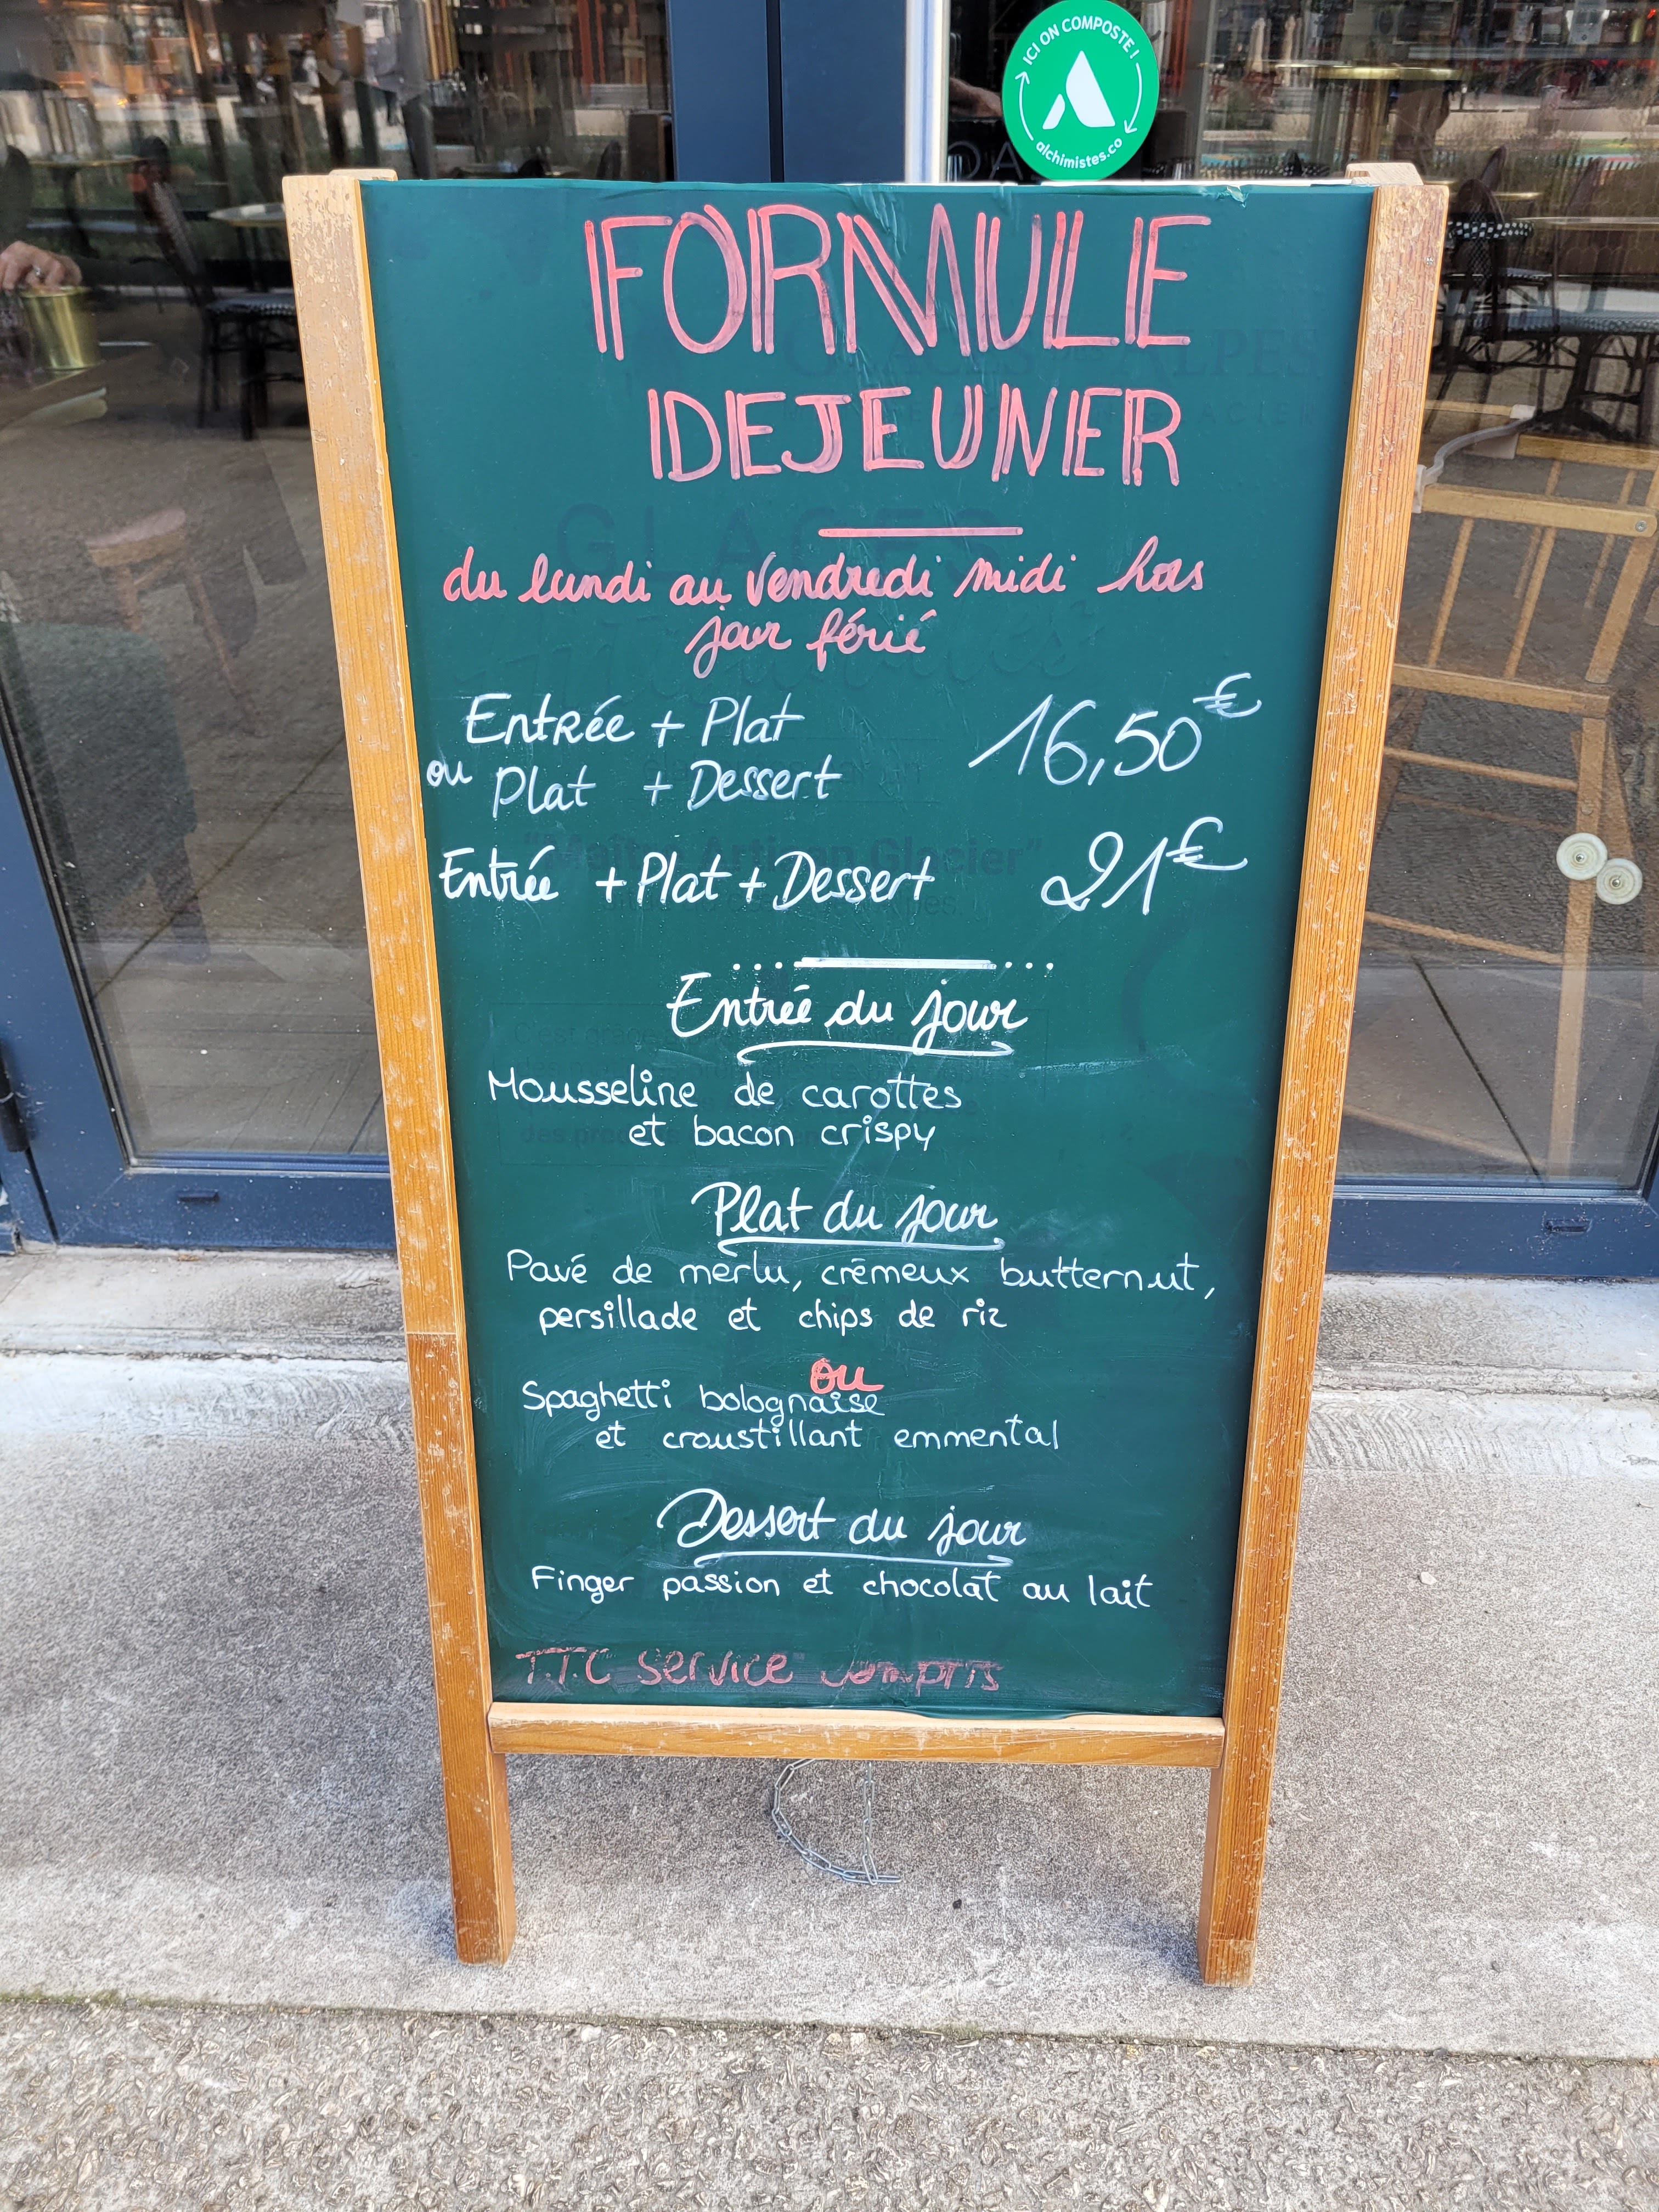 ICI ON COMPOSTE !
alchimistes.co
FORMULE
DEJEUNER
du lundi au vendredi midi hors
jour férié
Entrée + Plat
ou Plat + Dessert
16,50€
Entrée + Plat + Dessert 21€
Entrée du jour
Mousseline de carottes
et bacon crispy
Plat du jour
Pavé de merlu, crémeux butternut,
persillade et chips de riz
ou
Spaghetti bolognaise
et croustillant emmental
Dessert du jour
Finger passion et chocolat au lait
T.T.C service compris